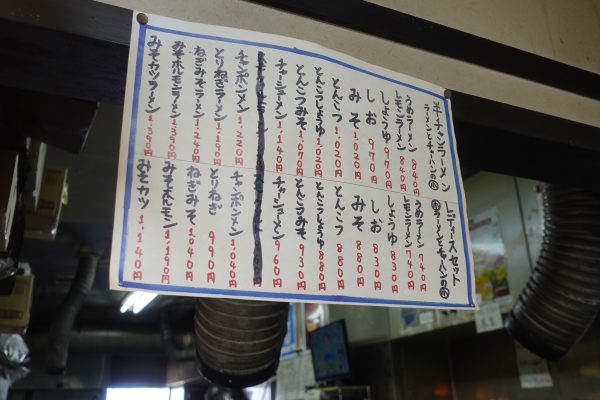 半チャンラーメン
ラーメンとチャーハンの小
うめラーメン 840円
レモンラーメン 840円
しょうゆ 970円
しお 970円
みそ 1,020円
とんこつ 1,020円
とんこつしょうゆ 1,020円
とんこつみそ 1,070円
チャーシューメン 1,140円
チャンポンメン 1,220円
とりねぎラーメン 1,190円
ねぎみそラーメン 1,240円
みそホルモンラーメン 1,390円
みそカツラーメン 1,390円
レディースセット
小ラーメンとチャーハンの小
うめラーメン 740円
レモンラーメン 740円
しょうゆ 830円
しお 830円
みそ 880円
とんこつ 880円
とんこつしょうゆ 880円
とんこつみそ 930円
チャーシューメン 960円
チャンポンメン 1,040円
とりねぎ 990円
ねぎみそ 1,040円
みそホルモン 1,190円
みそカツ 1,140円